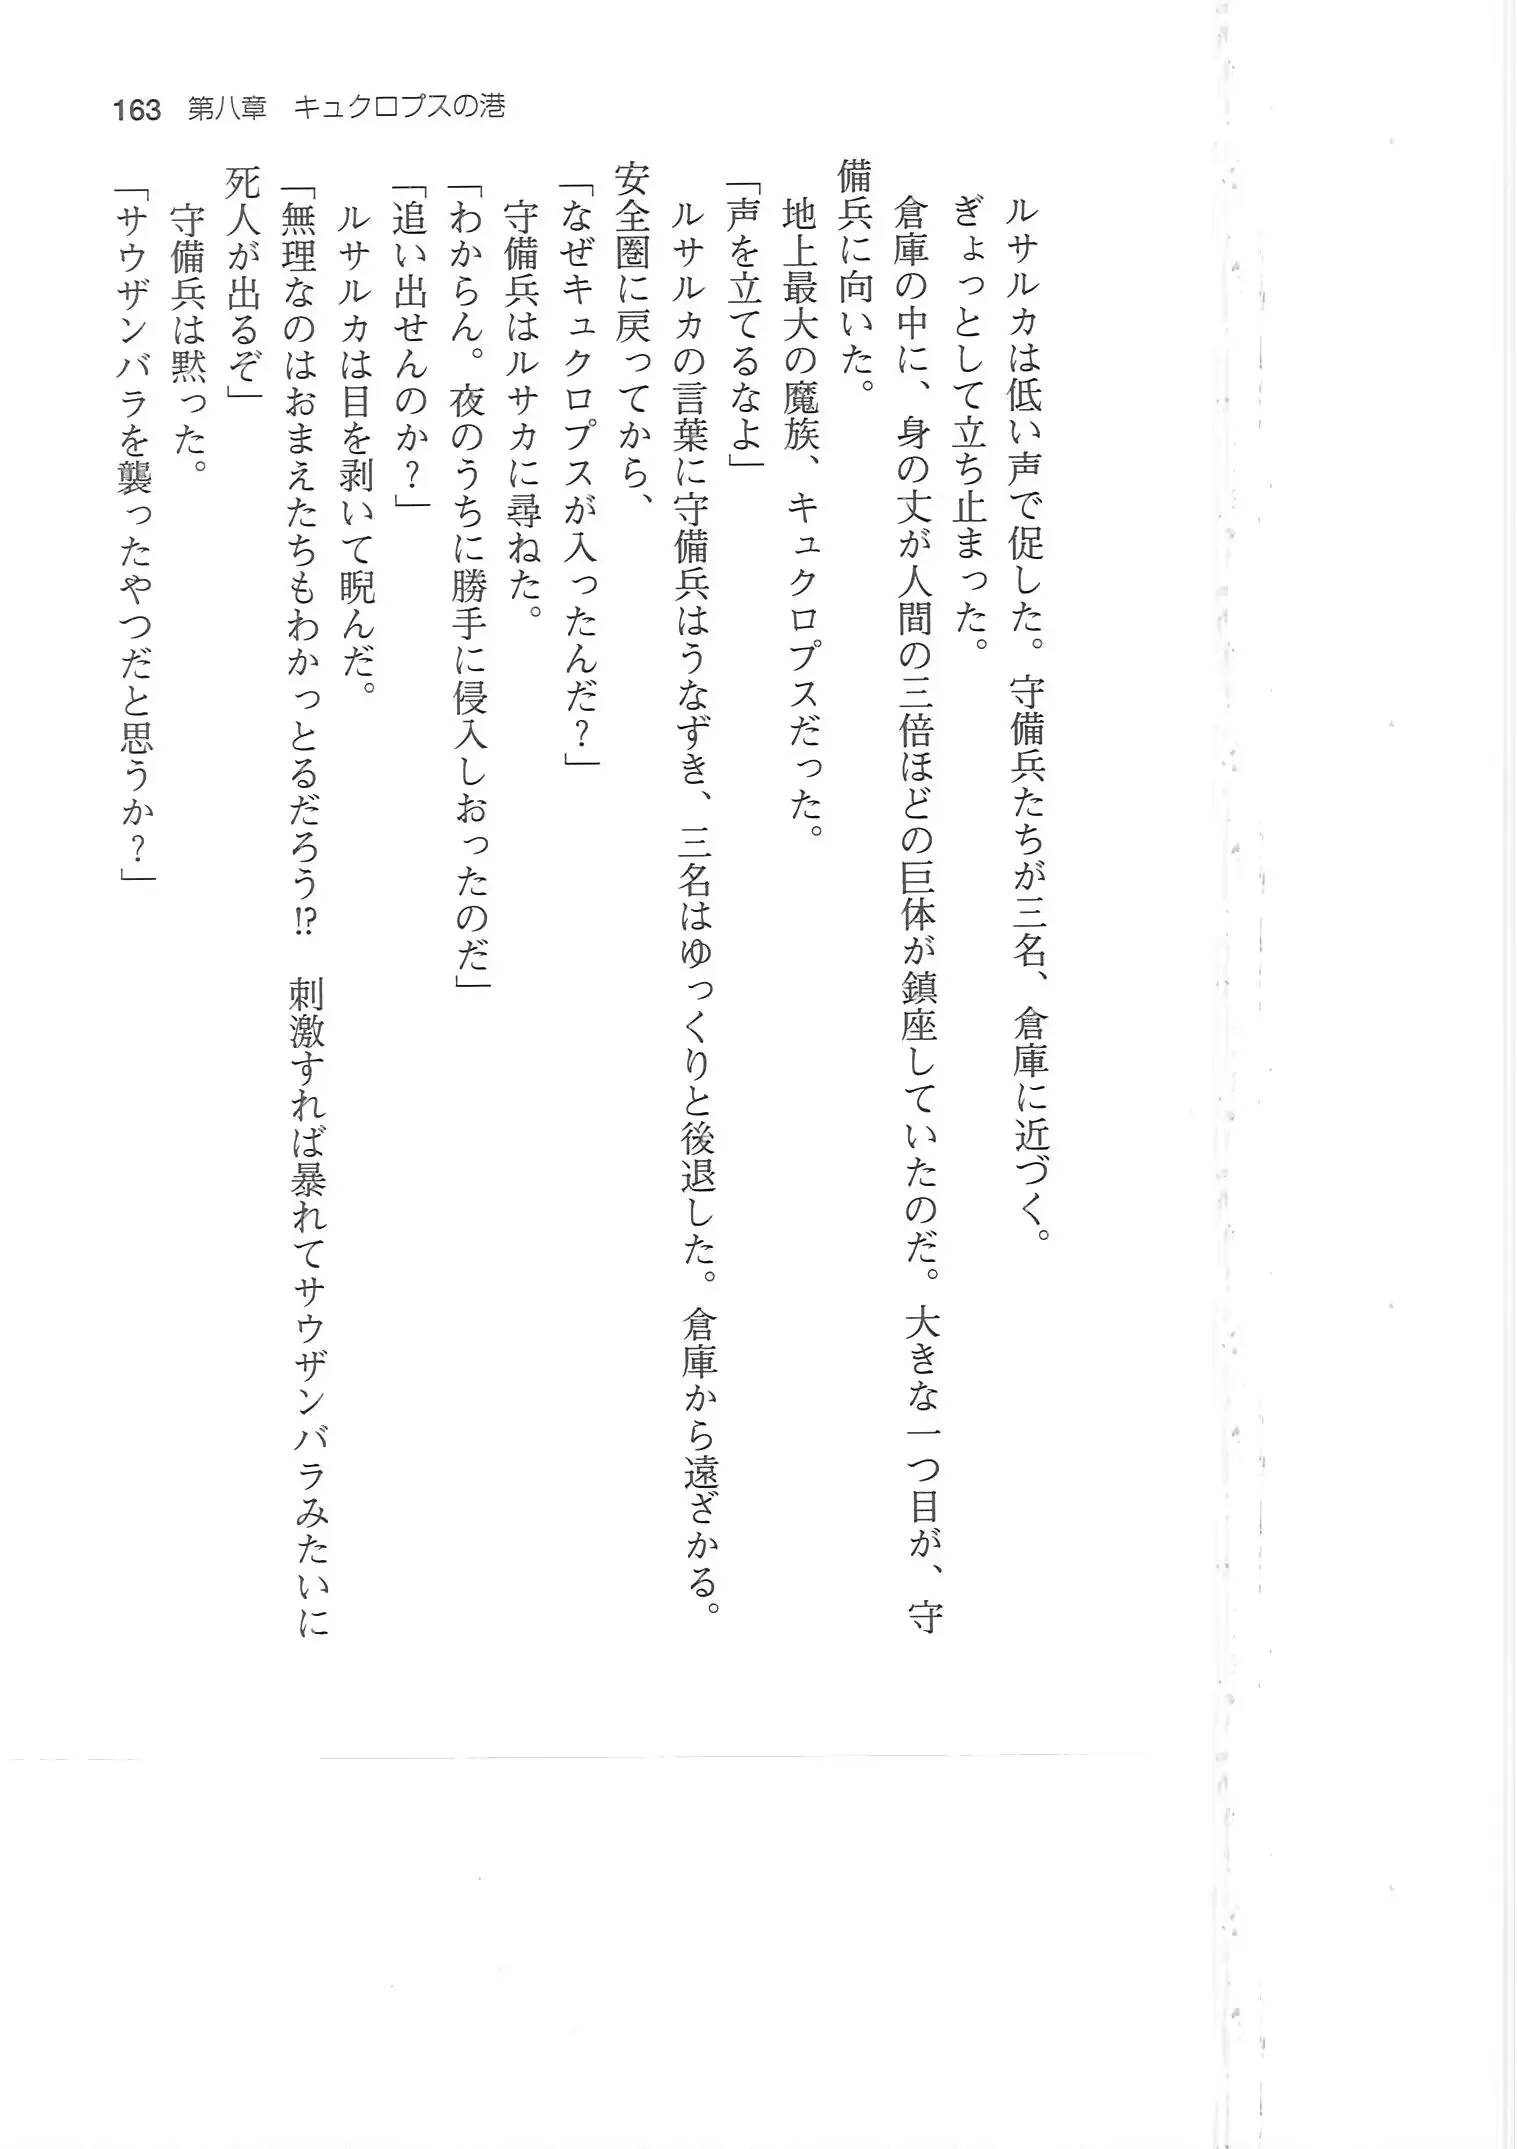 163 第八章 キュクロプスの港
　ルサルカは低い声で促した。守備兵たちが三名、倉庫に近づく。
　ぎょっとして立ち止まった。
　倉庫の中に、身の丈が人間の三倍ほどの巨体が鎮座していたのだ。大きな一つ目が、守
備兵に向いた。
　地上最大の魔族、キュクロプスだった。
「声を立てるなよ」
　ルサルカの言葉に守備兵はうなずき、三名はゆっくりと後退した。倉庫から遠ざかる。
安全圏に戻ってから、
「なぜキュクロプスが入ったんだ？」
　守備兵はルサカに尋ねた。
「わからん。夜のうちに勝手に侵入しおったのだ」
「追い出せんのか？」
　ルサルカは目を剥いて睨んだ。
「無理なのはおまえたちもわかっとるだろう⁉　刺激すれば暴れてサウザンバラみたいに
死人が出るぞ」
　守備兵は黙った。
「サウザンバラを襲ったやつだと思うか？」